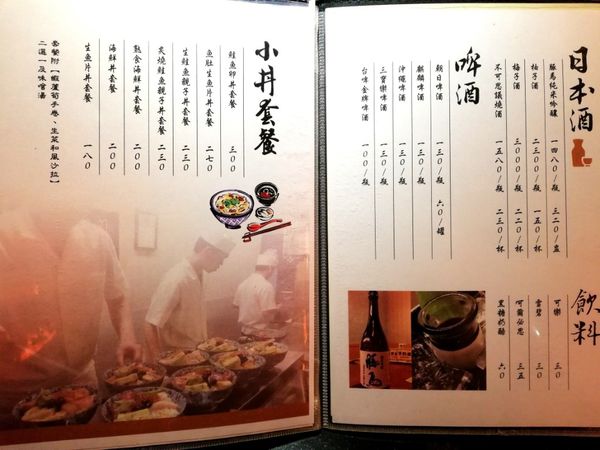 日本酒
勝馬純米吟釀 一四八〇/瓶 三二〇/壺
柚子酒 二三〇〇/瓶 一五〇/杯
梅子酒 三〇〇〇/瓶 二二〇/杯
不可思議燒酒 一五八〇/瓶 二三〇/杯
啤酒
朝日啤酒 一三〇/瓶 六〇/罐
麒麟啤酒 一三〇/瓶
沖繩啤酒 一三〇/瓶
三寶樂啤酒 一三〇/瓶
台啤金牌啤酒 一〇〇/瓶
飲料
可樂 三〇
雪碧 三〇
可爾必思 三五
黑糖奶酪 六〇
勝馬
小丼套餐
鮭魚卵丼套餐 三〇〇
魚肚生魚片丼套餐 二七〇
生鮭魚親子丼套餐 二三〇
炙燒鮭魚親子丼套餐 二三〇
熟食海鮮丼套餐 二〇〇
海鮮丼套餐 二〇〇
生魚片丼套餐 一八〇
套餐附【蝦蘆筍手卷、生菜和風沙拉】
二選一及味噌湯